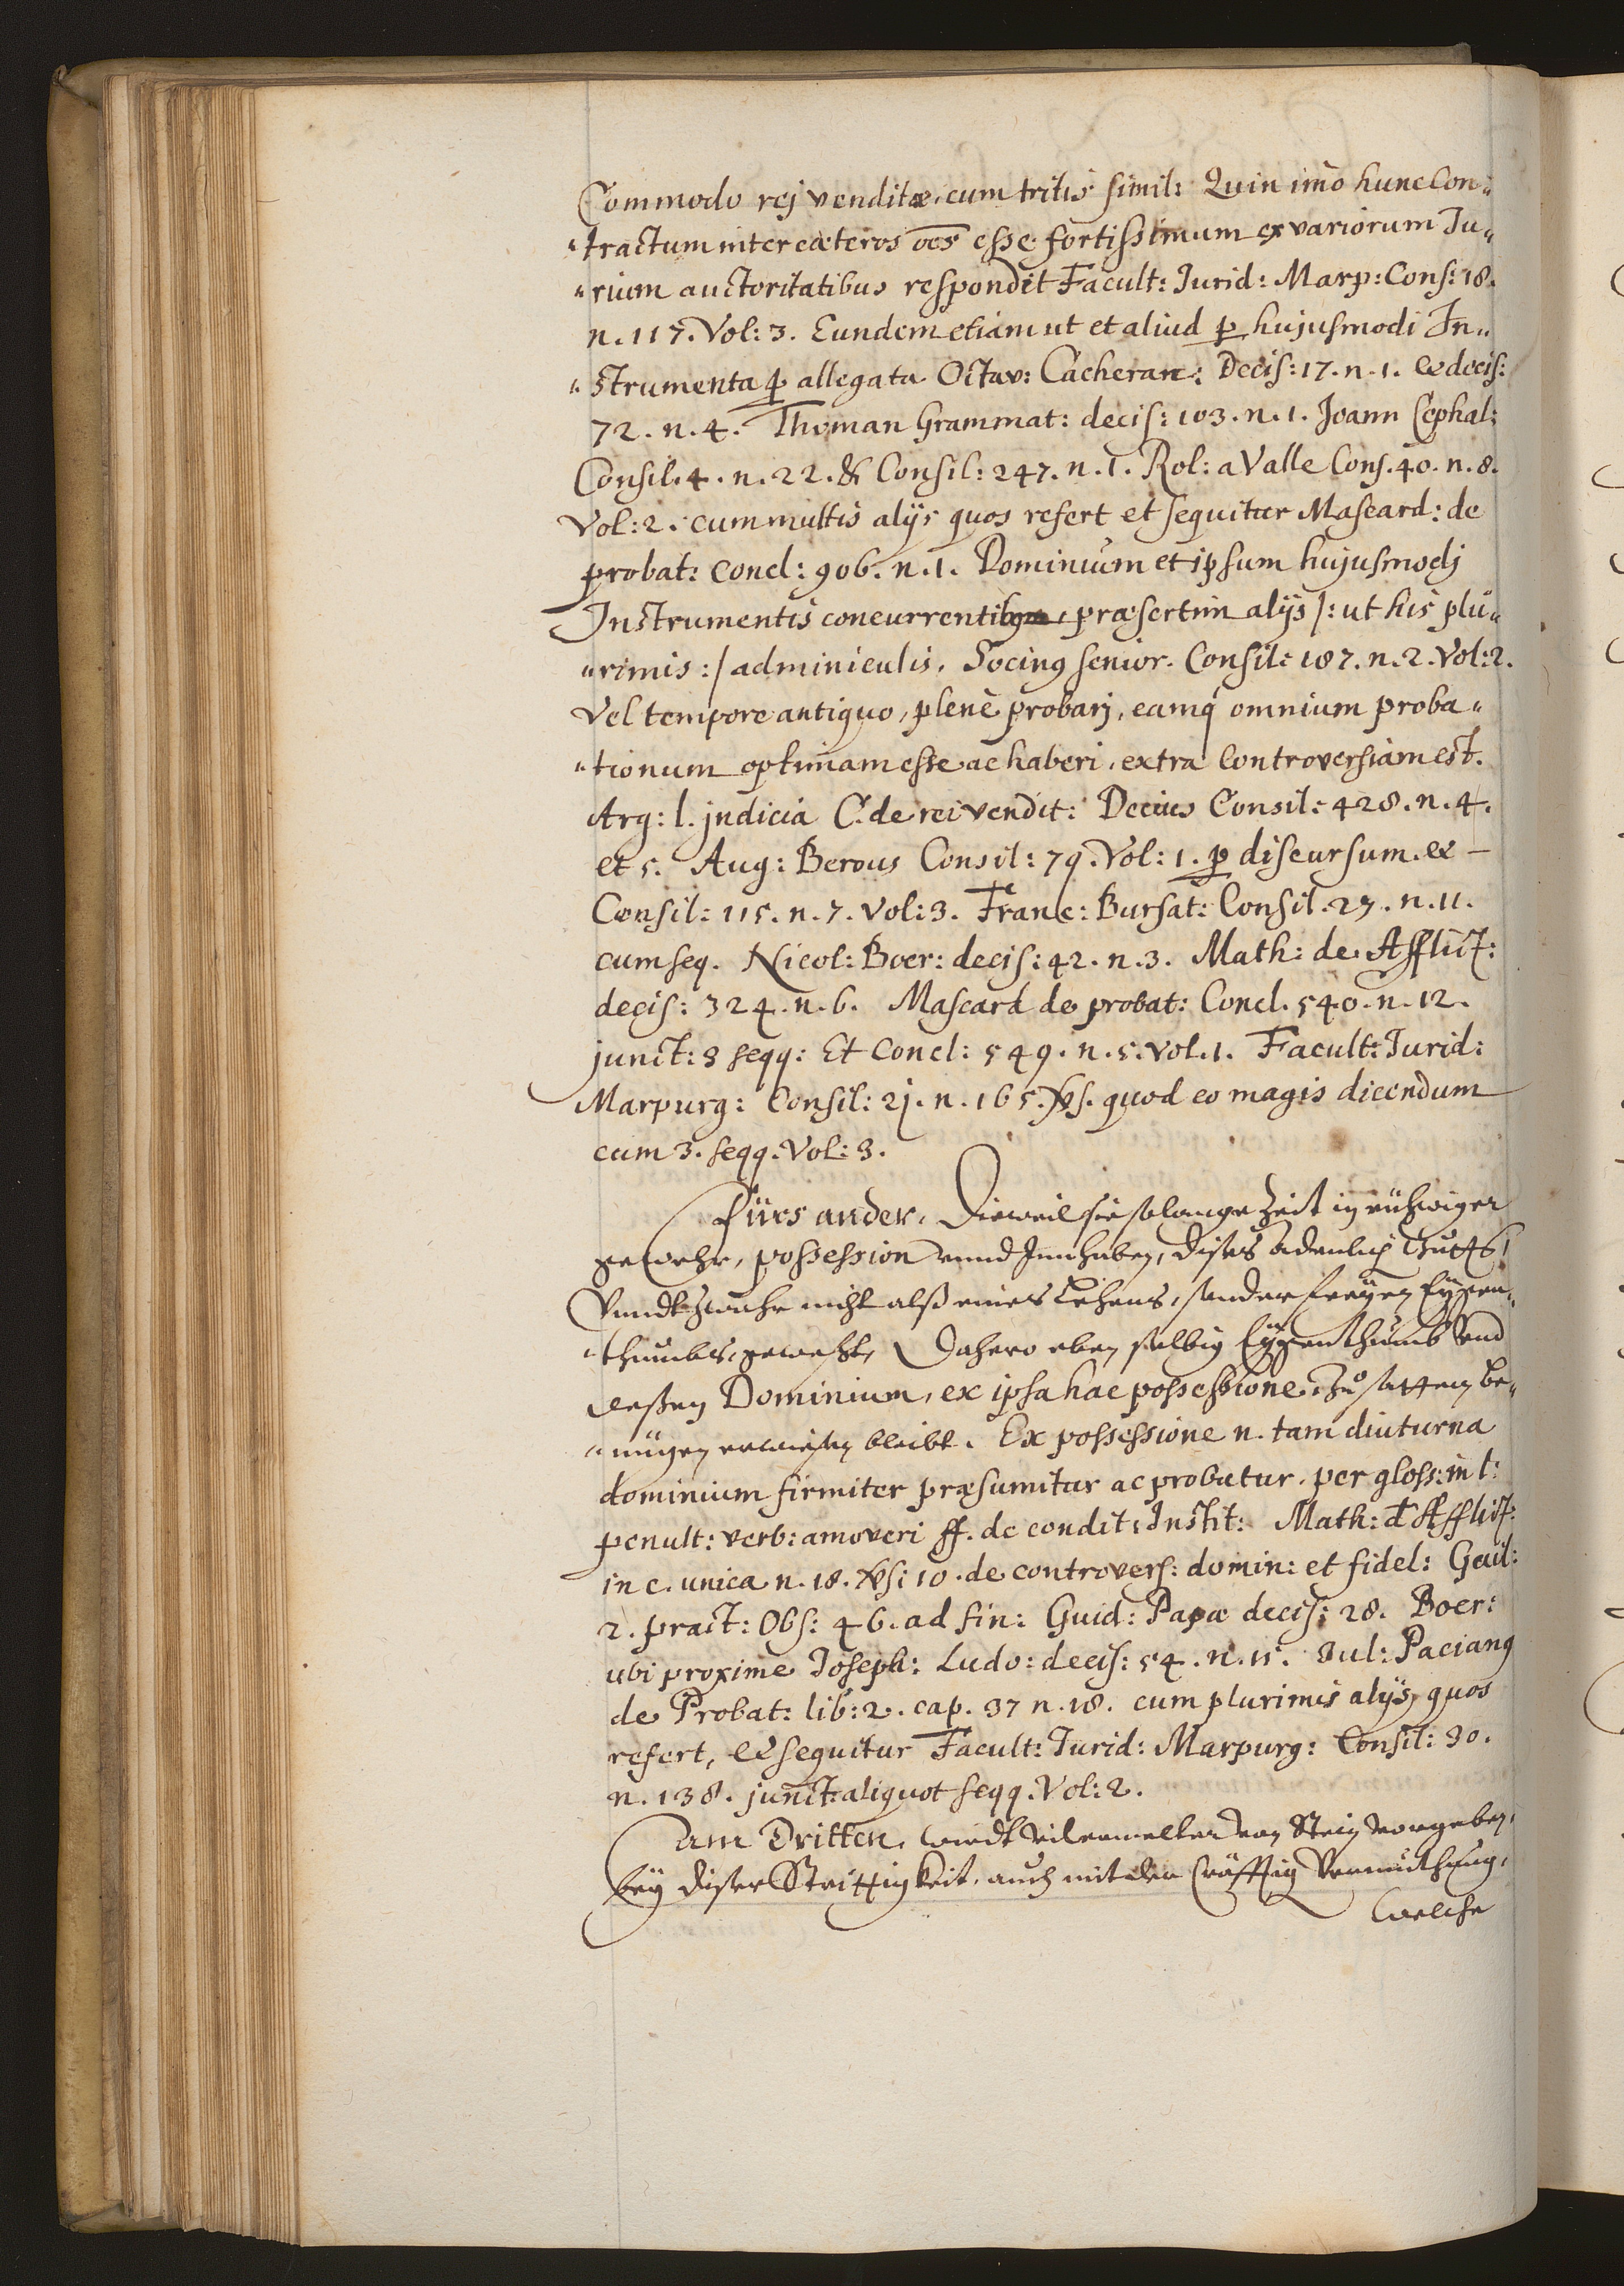 Commodo rej venditæ, cum tritis simil: Quin imò hunc Con„
„tractum inter cæteros oēs esse fortissimum ex variorum Ju„
„rium auctoritatibus respondit Facult: Jurid: Marp: Cons: 18.
n. 117. Vol: 3. Eundem etiam ut et aliud ꝑ hujusmodi In„
„strumenta ꝑ allegata Octav: Cacheran: Decis: 17. n. 1. et decis:
72. n. 4. Thoman Grammat: decis: 103. n. 1. Joann Cephal:
Consil. 4. n. 22. & Consil: 247. n. 1. Rol: a Valle Cons. 40. n. 8.
Vol: 2. cum multis alijs quos refert et sequitur Mascard: de
probat: concl: 906. n. 1. Dominium et ipsum hujusmodj
Instrumentis concurrentibus, præsertim alijs /: ut his plu„
„rimis :/ adminiculis. Socinꝰ senior. Consil: 187. n. 2. Vol: 2.
Vel tempore antiquo, plenè probarj, eamq́ omnium proba„
„tionum optimam esse ac haberi, extra controversiam est.
Arg: l. jndicia C. de rei vendit: Decius Consil: 428. n. 4.
et 5. Aug: Berous Consil: 79. Vol: 1. ꝑ discursum. et
Consil: 115. n. 7. Vol: 3. Franc: Bursat: Consil. 27. n. 11.
cum seq. Nicol: Boer: decis: 42. n. 3. Math: de Afflict:
decis: 324. n. 6. Mascard de probat: Concl. 540. n. 12.
junct: 3 seqq: Et Concl: 549. n. 5. Vol. 1. Facult: Jurid:
Marpurg: Consil: 21. n. 165. vs. quod eo magis dicendum
cum 3. seqq. Vol: 3.
Fürs ander, Dieweil sie solange Zeit in rühwiger
gewehr, possession vnnd Innhaben, dises Adenlich Guetts,
Vnndt zwahr nicht alß eines Lehens, sonder freyen Eygen„
„thumbs, geweßt, Dahero eben selbig Eygenthumb vnd
deßen Dominium, ex ipsa hac possessione, zu sattem be„
„nügen erwisen bleibt. Ex possessione n. tam diuturna
dominium firmiter præsumitur ac probatur. per gloss: in l:
penult: verb: amoveri ff. de condit: Instit: Math: đ Afflict:
in c. unica n. 18. vs: 10. de controvers: domin: et fidel: Gail:
2. pract: Obs: 46. ad fin: Guid: Papæ decis: 28. Boer:
ubi proxime Joseph: Ludo: decis: 54. n. 11. Jul: Pacianꝰ
de Probat: lib: 2. cap. 37 n. 18. cum plurimis alijs, quos
refert, et sequitur Facult: Jurid: Marpurg: Consil: 30.
n. 138. junct: aliquot seqq. Vol: 2.
Am Dritten, wirdt deren von Stein vorgeben,
bey diser Strittigkeit, auch mit der Cräfftig Vermuthung,
welche